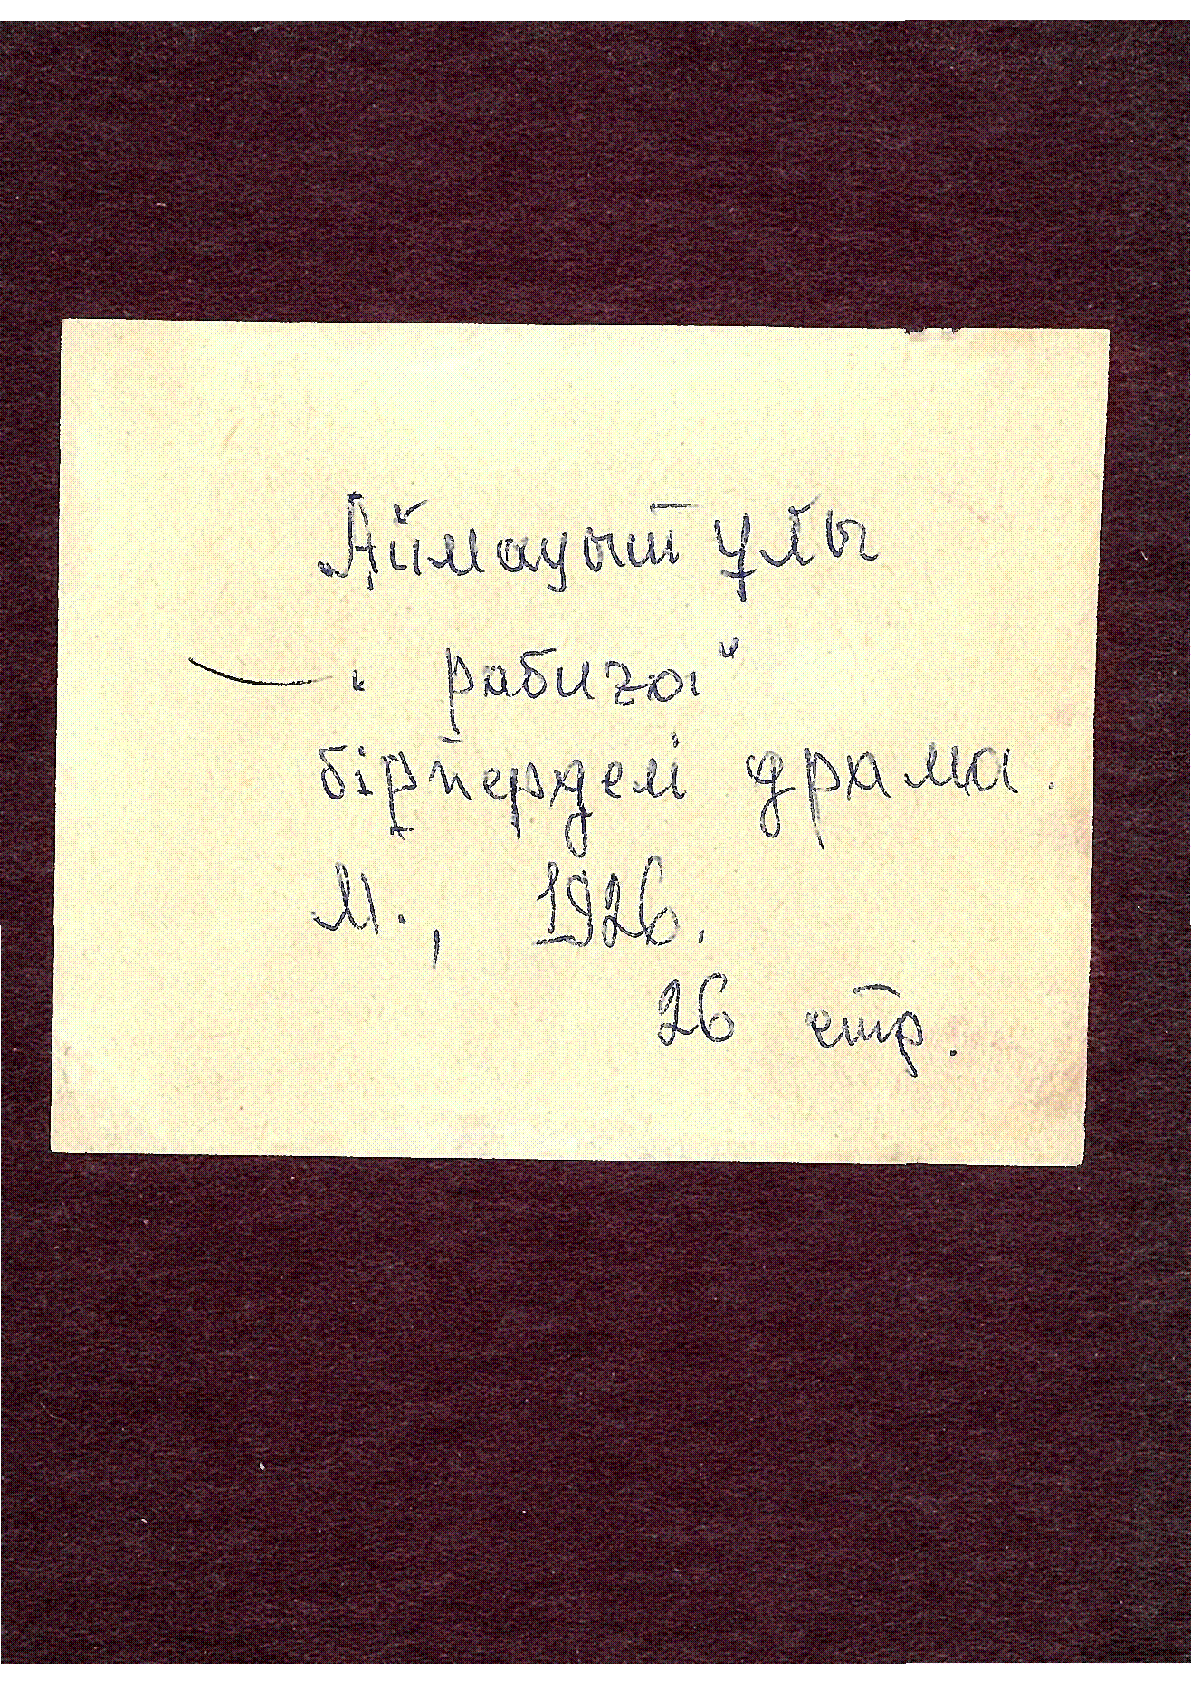 Аймауыт ұлы
„рабиға"
бірперделі драма.
М., 1926.
26 стр.